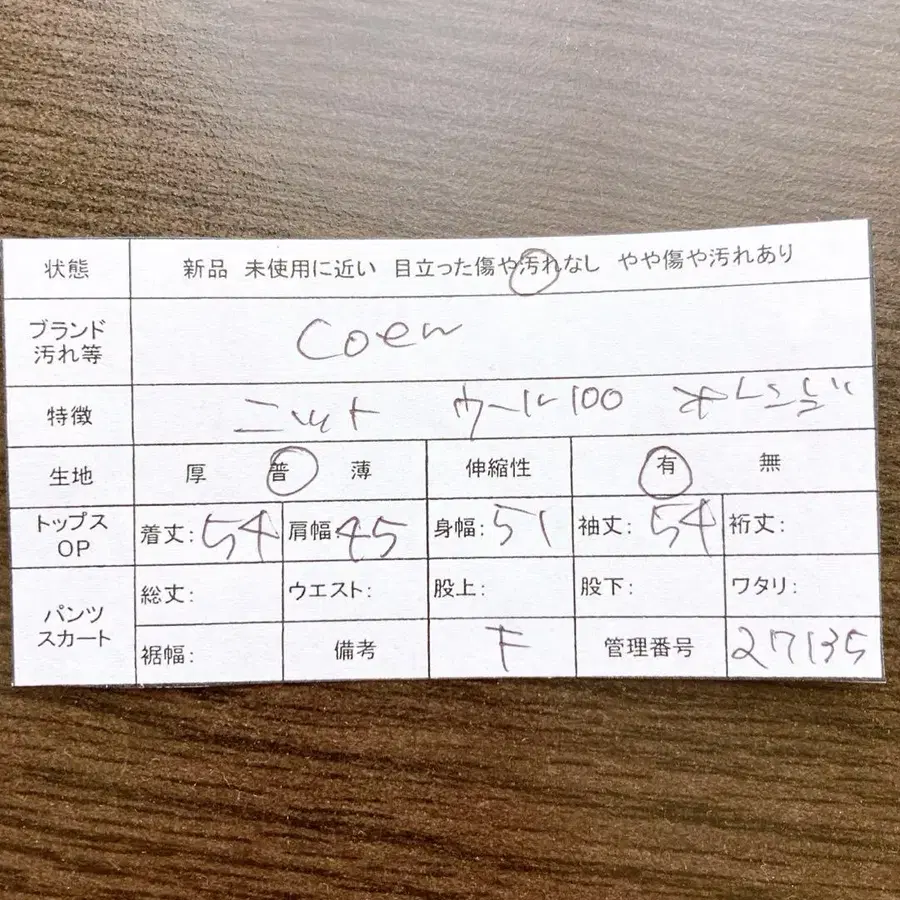 状態 新品 未使用に近い 目立った傷や汚れなし やや傷や汚れあり
ブランド
汚れ等 coen
特徴 ニット ウール100 オレンジ
生地 厚 普 薄 伸縮性 有 無
トップス
OP 着丈:54 肩幅45 身幅:51 袖丈:54 裄丈:
パンツ
スカート 総丈: ウエスト: 股上: 股下: ワタリ:
裾幅: 備考 F 管理番号 27135